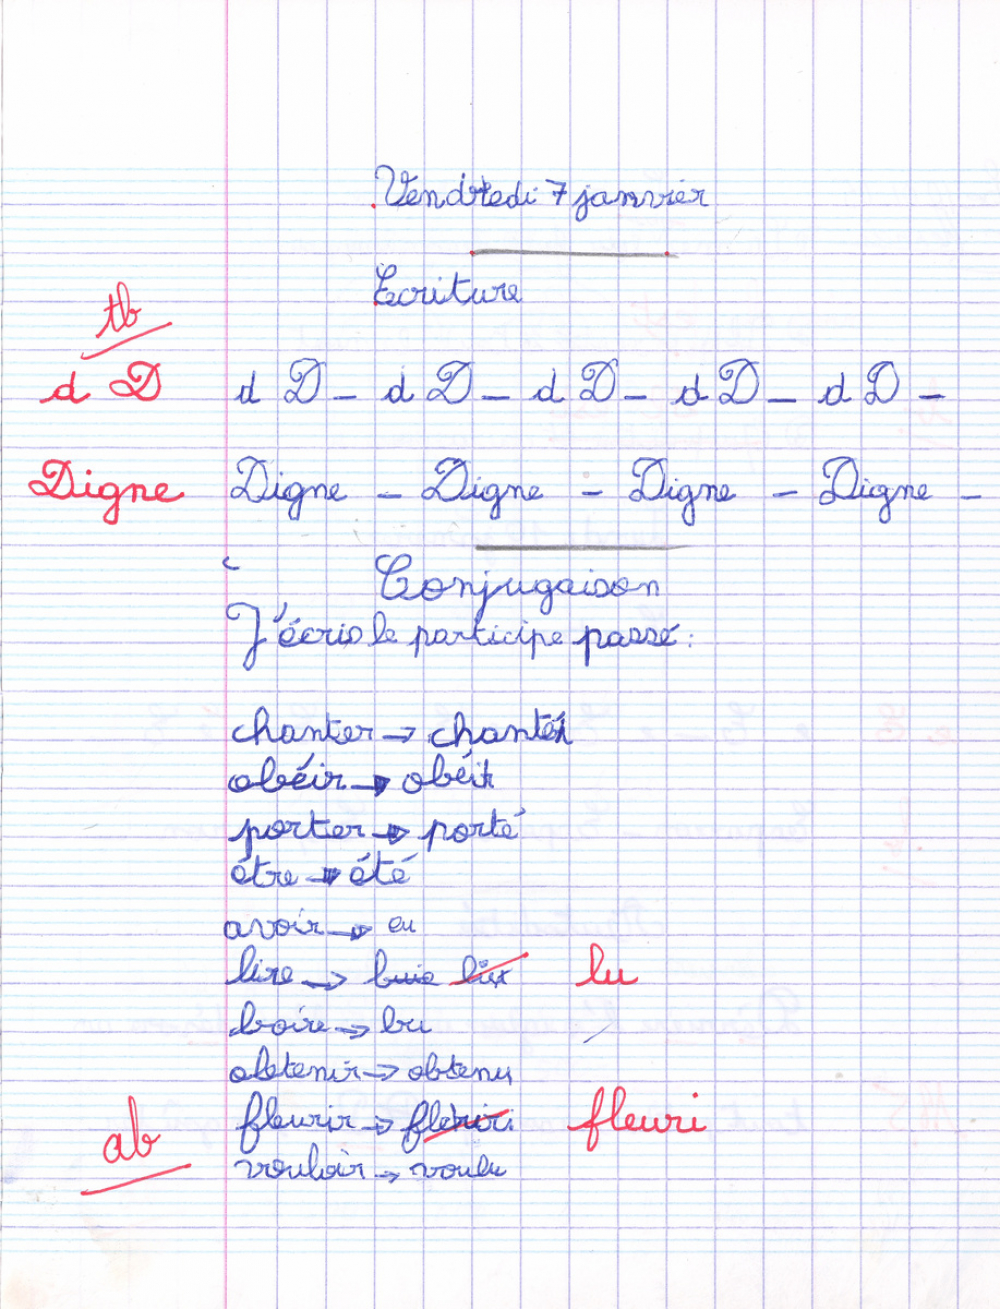 Vendredi 7 janvier
Ecriture
tb
d D d D - d D - d D - d D - d D -
Digne Digne - Digne - Digne - Digne -
Conjugaison
J'écris le participe passé :
chanter → chanté
obéir → obéit
porter → porté
être → été
avoir → eu
lire → lu
boire → bu
obtenir → obtenu
fleurir → fleurir fleuri
ab
vouloir → voulu